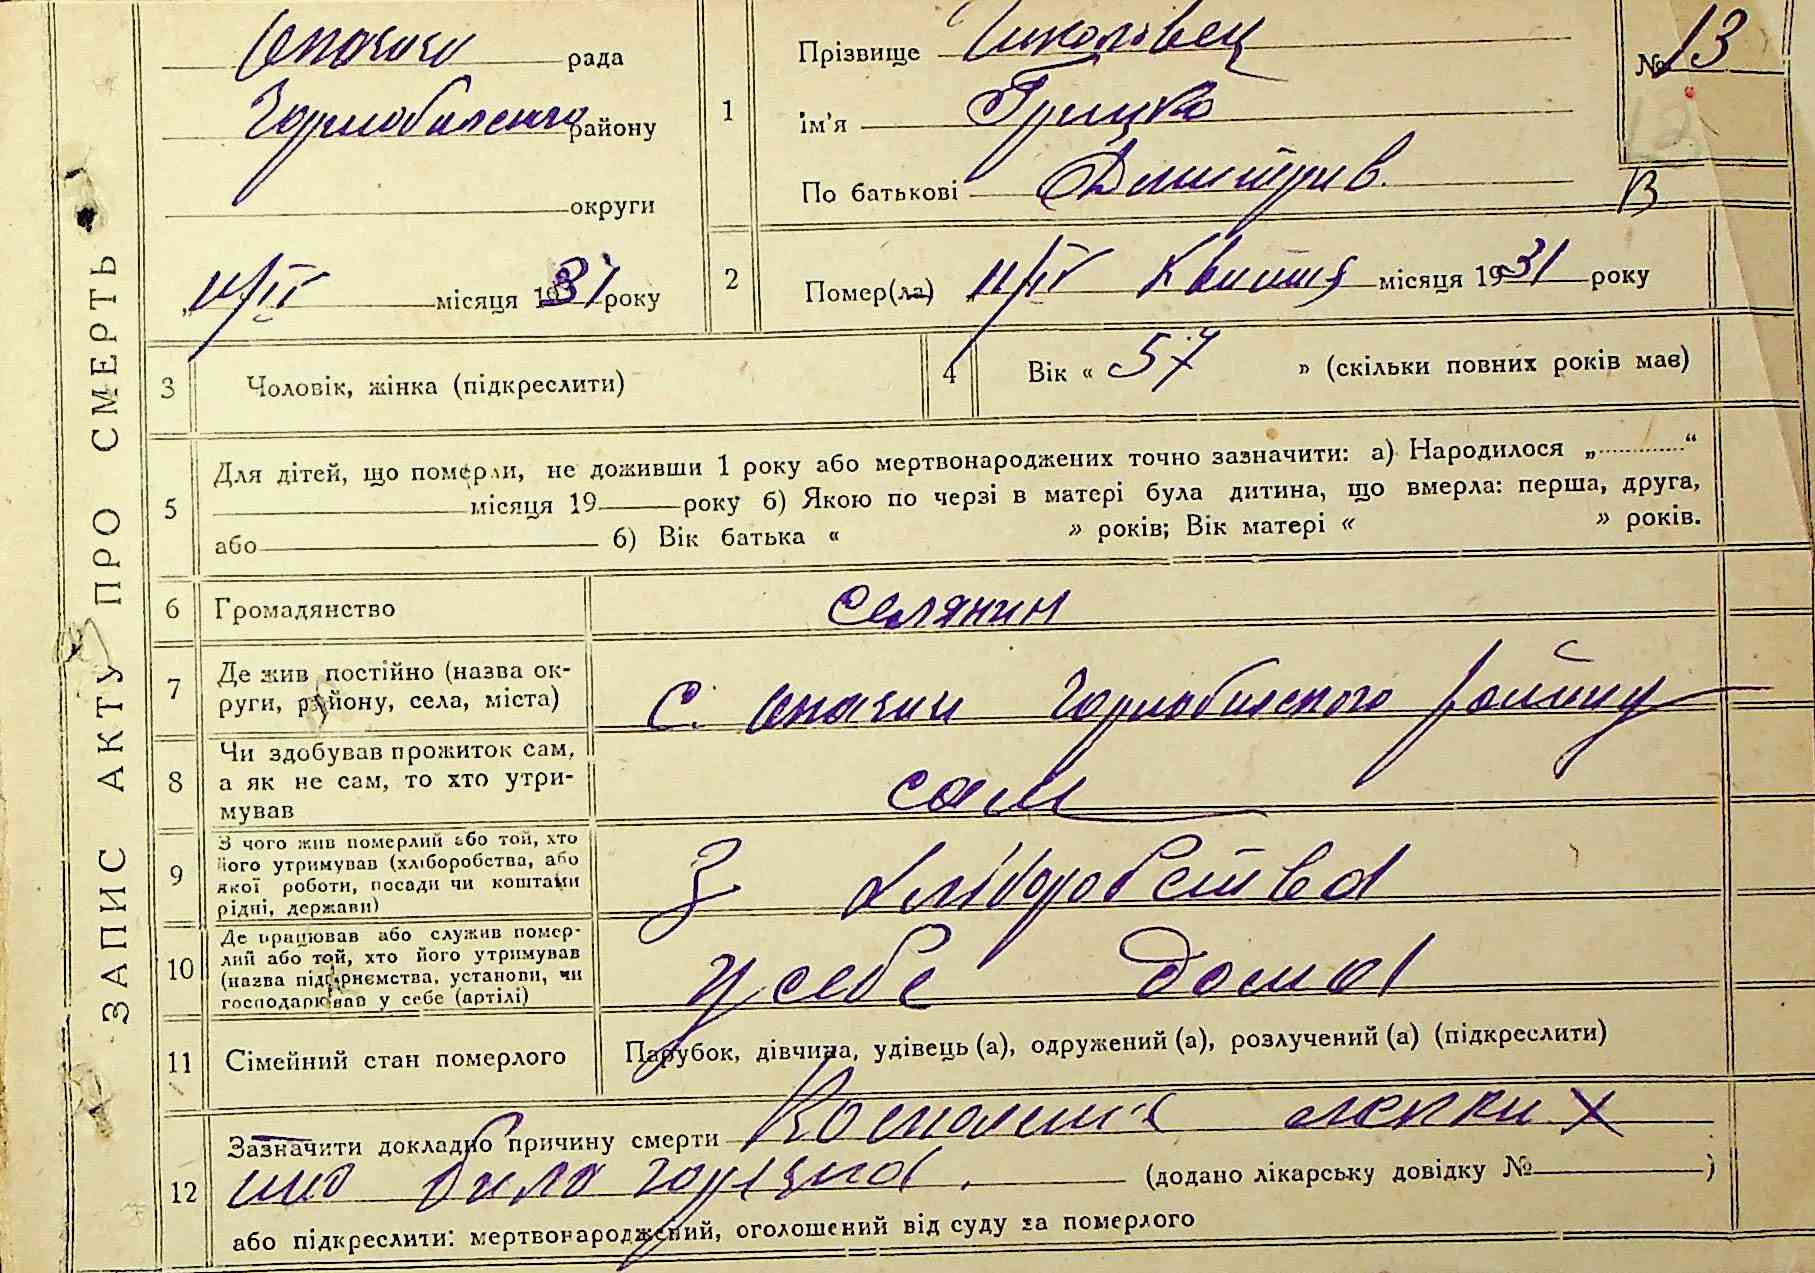 ЗАПИС АКТУ ПРО СМЕРТЬ
Опачичи рада
Чорнобильського району
округи
„11/IV місяця 1931 року
1 Прізвище
ім'я Грицко
По батькові Дмитрів.
№ 13
12
В
2 Помер(ла) „11/IV Квітня місяця 1931 року
3 Чоловік, жінка (підкреслити)
4 Вік « 57 » (скільки повних років має)
5 Для дітей, що померли, не доживши 1 року або мертвонароджених точно зазначити: а) Народилося „..........“
місяця 19 року б) Якою по черзі в матері була дитина, що вмерла: перша, друга,
або б) Вік батька « » років; Вік матері « » років.
6 Громадянство селянин
7 Де жив постійно (назва ок-
руги, району, села, міста) с. Опачичи Чорнобильского району
8 Чи здобував прожиток сам,
а як не сам, то хто утри-
мував сам
9 З чого жив померлий або той, хто
його утримував (хліборобства, або
якої роботи, посади чи коштами
рідні, держави) З хліборобства
10 Де працював або служив помер-
лий або той, хто його утримував
(назва підприємства, установи, чи
господарював у себе (артілі) у себе дома
11 Сімейний стан померлого Парубок, дівчина, удівець (а), одружений (а), розлучений (а) (підкреслити)
12 Зазначити докладно причину смерти легких
била (додано лікарську довідку № )
або підкреслити: мертвонароджений, оголошений від суду за померлого